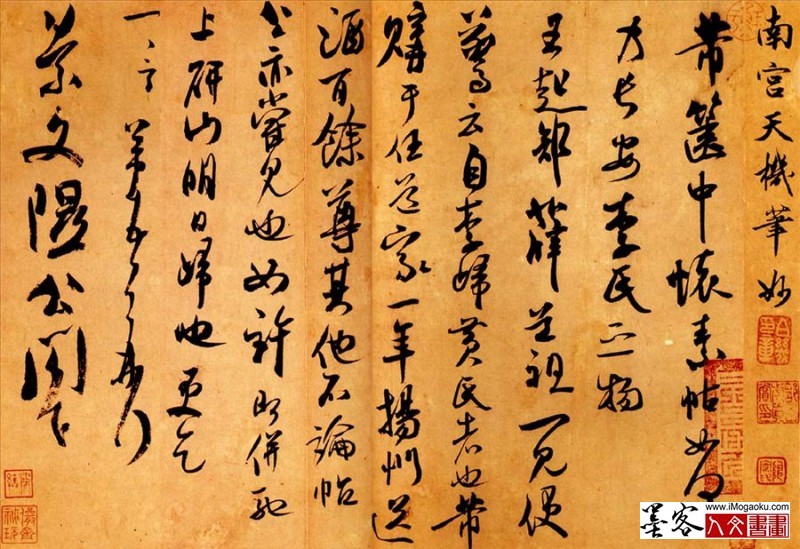 南宮天機筆妙
芾篋中懷素帖如何
乃長安李氏之物
王起部薛道祖一見便
驚云自李歸黃氏者也芾
購于任道家一年揚州送
酒百餘尊其他不論帖
公亦嘗見也如許即併馳
上研山明日歸也更乞
一一言芾頓首再拜
景文隰公閤下
墨客
www.iMogaoku.com
人文書畫